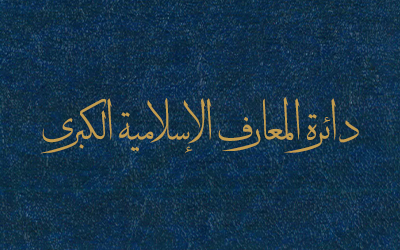 دائرة المعارف الإسلامية الكبرى